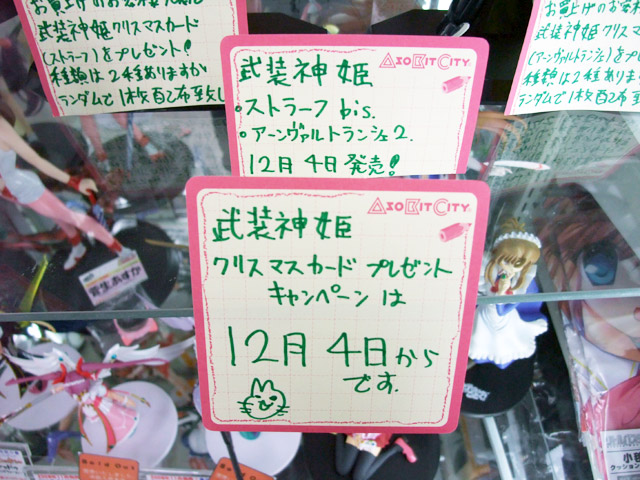 お買上げのお客様
武装神姫クリスマスカード
(ストラーフ)をプレゼント!
種類は2種ありますが
ランダムで1枚配布致し
武装神姫
AsoBitCity
・ストラーフ bis.
・アーンヴァルトランシェ2.
12月4日発売!
武装神姫クリスマ
(アーンヴァルトランシェ)を
種類は2種ありま
ランダムで1枚配布
武装神姫
AsoBitCity
クリスマスカード プレゼント
キャンペーンは
12月 4日から
です.
Sold Out